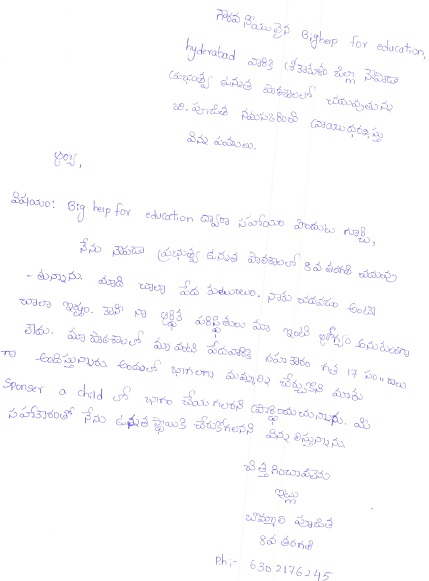 గౌరవనీయులైన Bighelp for education,
hyderabad వారికి శ్రీకాకుళం జిల్లా
ప్రభుత్వ ఉన్నత పాఠశాలలో చదువుతున్న
బి. పూజిత నమస్కరించి వ్రాయుచున్న
విన్నపములు.
ఆర్యా,
విషయం: Big help for education ద్వారా సహాయం పొందుట గూర్చి,
నేను ప్రభుత్వ ఉన్నత పాఠశాలలో 8వ తరగతి చదువు
- తున్నాను. మాది చాలా పేద కుటుంబం. నాకు చదవడం అంటే
చాలా ఇష్టం. కానీ నా ఆర్థిక పరిస్థితులు మా ఇంటి ఆరోగ్యం అనుకూలంగా
లేదు. మా పాఠశాలలో మా వంటి పేదవారికి సహకారం గత 17 సం॥రాలు
గా అందిస్తున్నారు. అందులో భాగంగా మమ్మల్ని చేర్చుకొని మీరు
Sponser a child లో భాగం చేయగలరని ప్రార్థిస్తున్నాను. మీ
సహకారంతో నేను ఉన్నత స్థాయికి చేరుకోగలనని విన్నవిస్తున్నాను.
చిత్తగించవలెను
ఇట్లు
బొమ్మాలి పూజిత
8వ తరగతి
Ph:- 6302176245